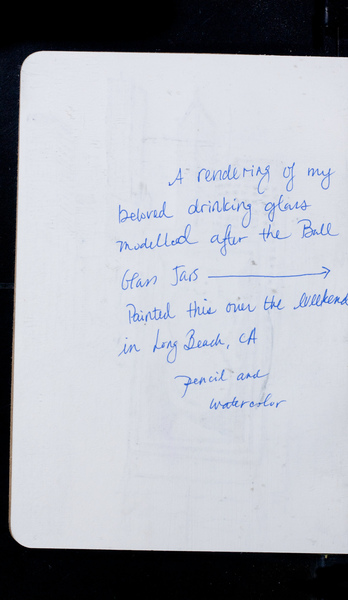 A rendering of my
beloved drinking glass
modelled after the Ball
Glass Jars
Painted this over the weekend
in Long Beach, CA
pencil and
watercolor